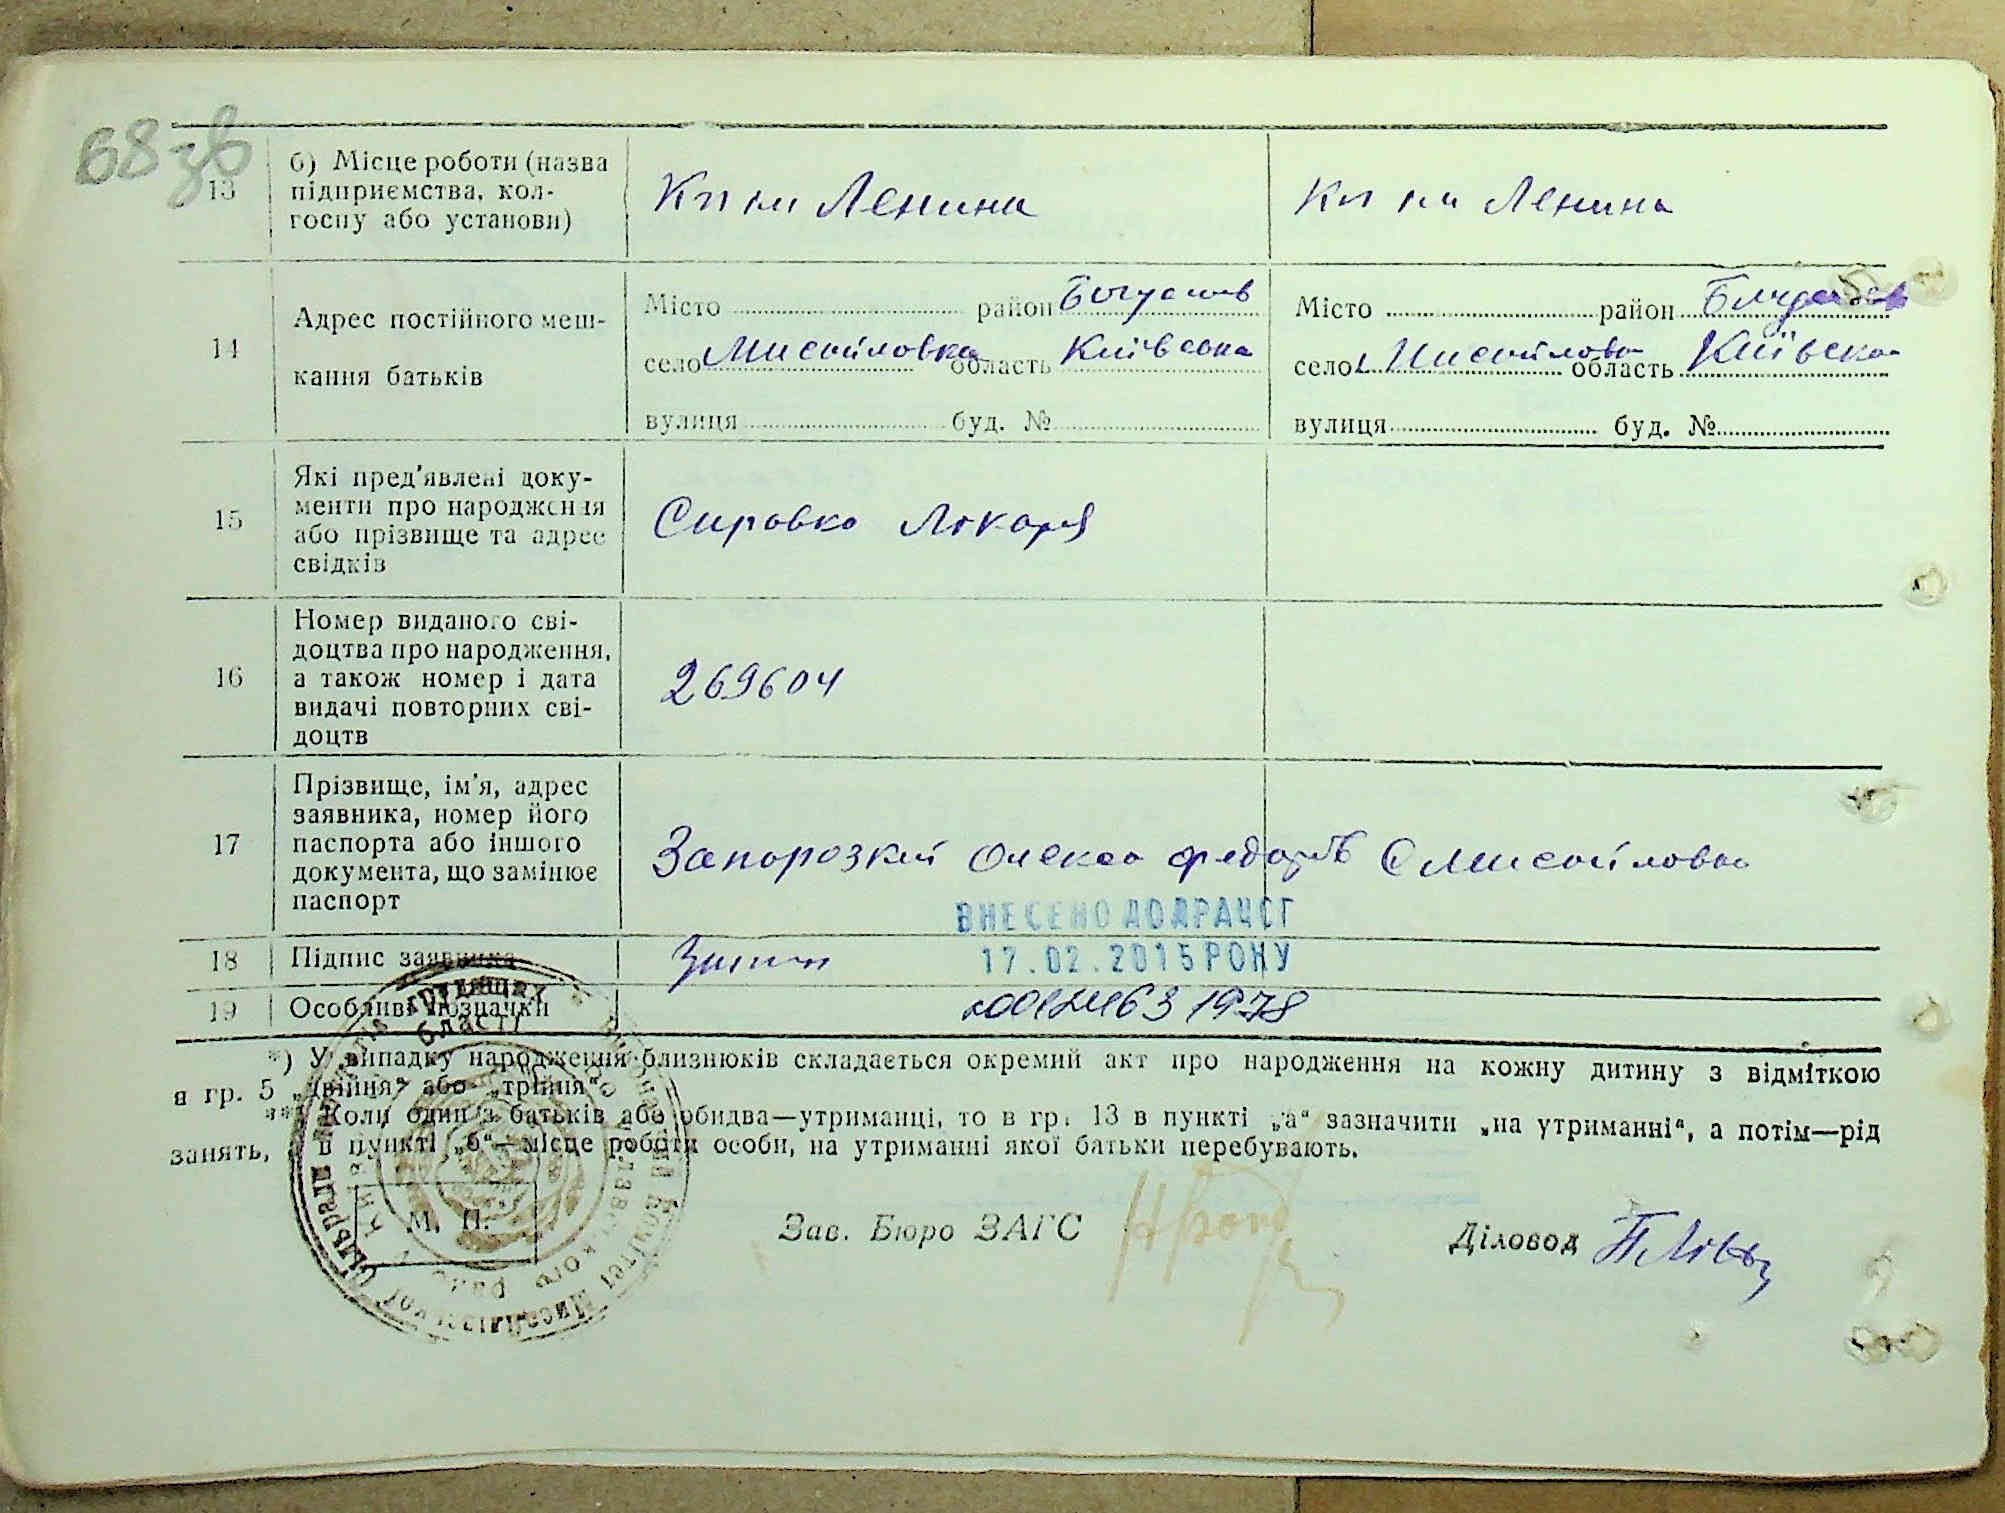 68 зв
13
б) Місце роботи (назва
підприємства, кол-
госпу або установи)
Кп ім Ленина
Кп ім Ленина
14
Адрес постійного меш-
кання батьків
Місто район
село Мисайловка область Київська
вулиця буд. №
Місто район
село область Київска
вулиця буд. №
15
Які пред'явлені доку-
менти про народження
або прізвище та адрес
свідків
Справка Лікаря
16
Номер виданого сві-
доцтва про народження,
а також номер і дата
видачі повторних сві-
доцтв
269604
17
Прізвище, ім'я, адрес
заявника, номер його
паспорта або іншого
документа, що замінює
паспорт
Запорозкий Олекса С Мисайловка
ВНЕСЕНО ДО ДРАЦСГ
17.02.2015 РОКУ
18
Підпис заявника
19
Особливі позначки
1978
*) У випадку народження близнюків складається окремий акт про народження на кожну дитину з відміткою
в гр. 5 „двійня" або „трійня".
**) Коли один з батьків або обидва—утриманці, то в гр. 13 в пункті „а" зазначити „на утриманні", а потім—рід
занять, а в пункті „б"—місце роботи особи, на утриманні якої батьки перебувають.
М. П.
Зав. Бюро ЗАГС
Діловод